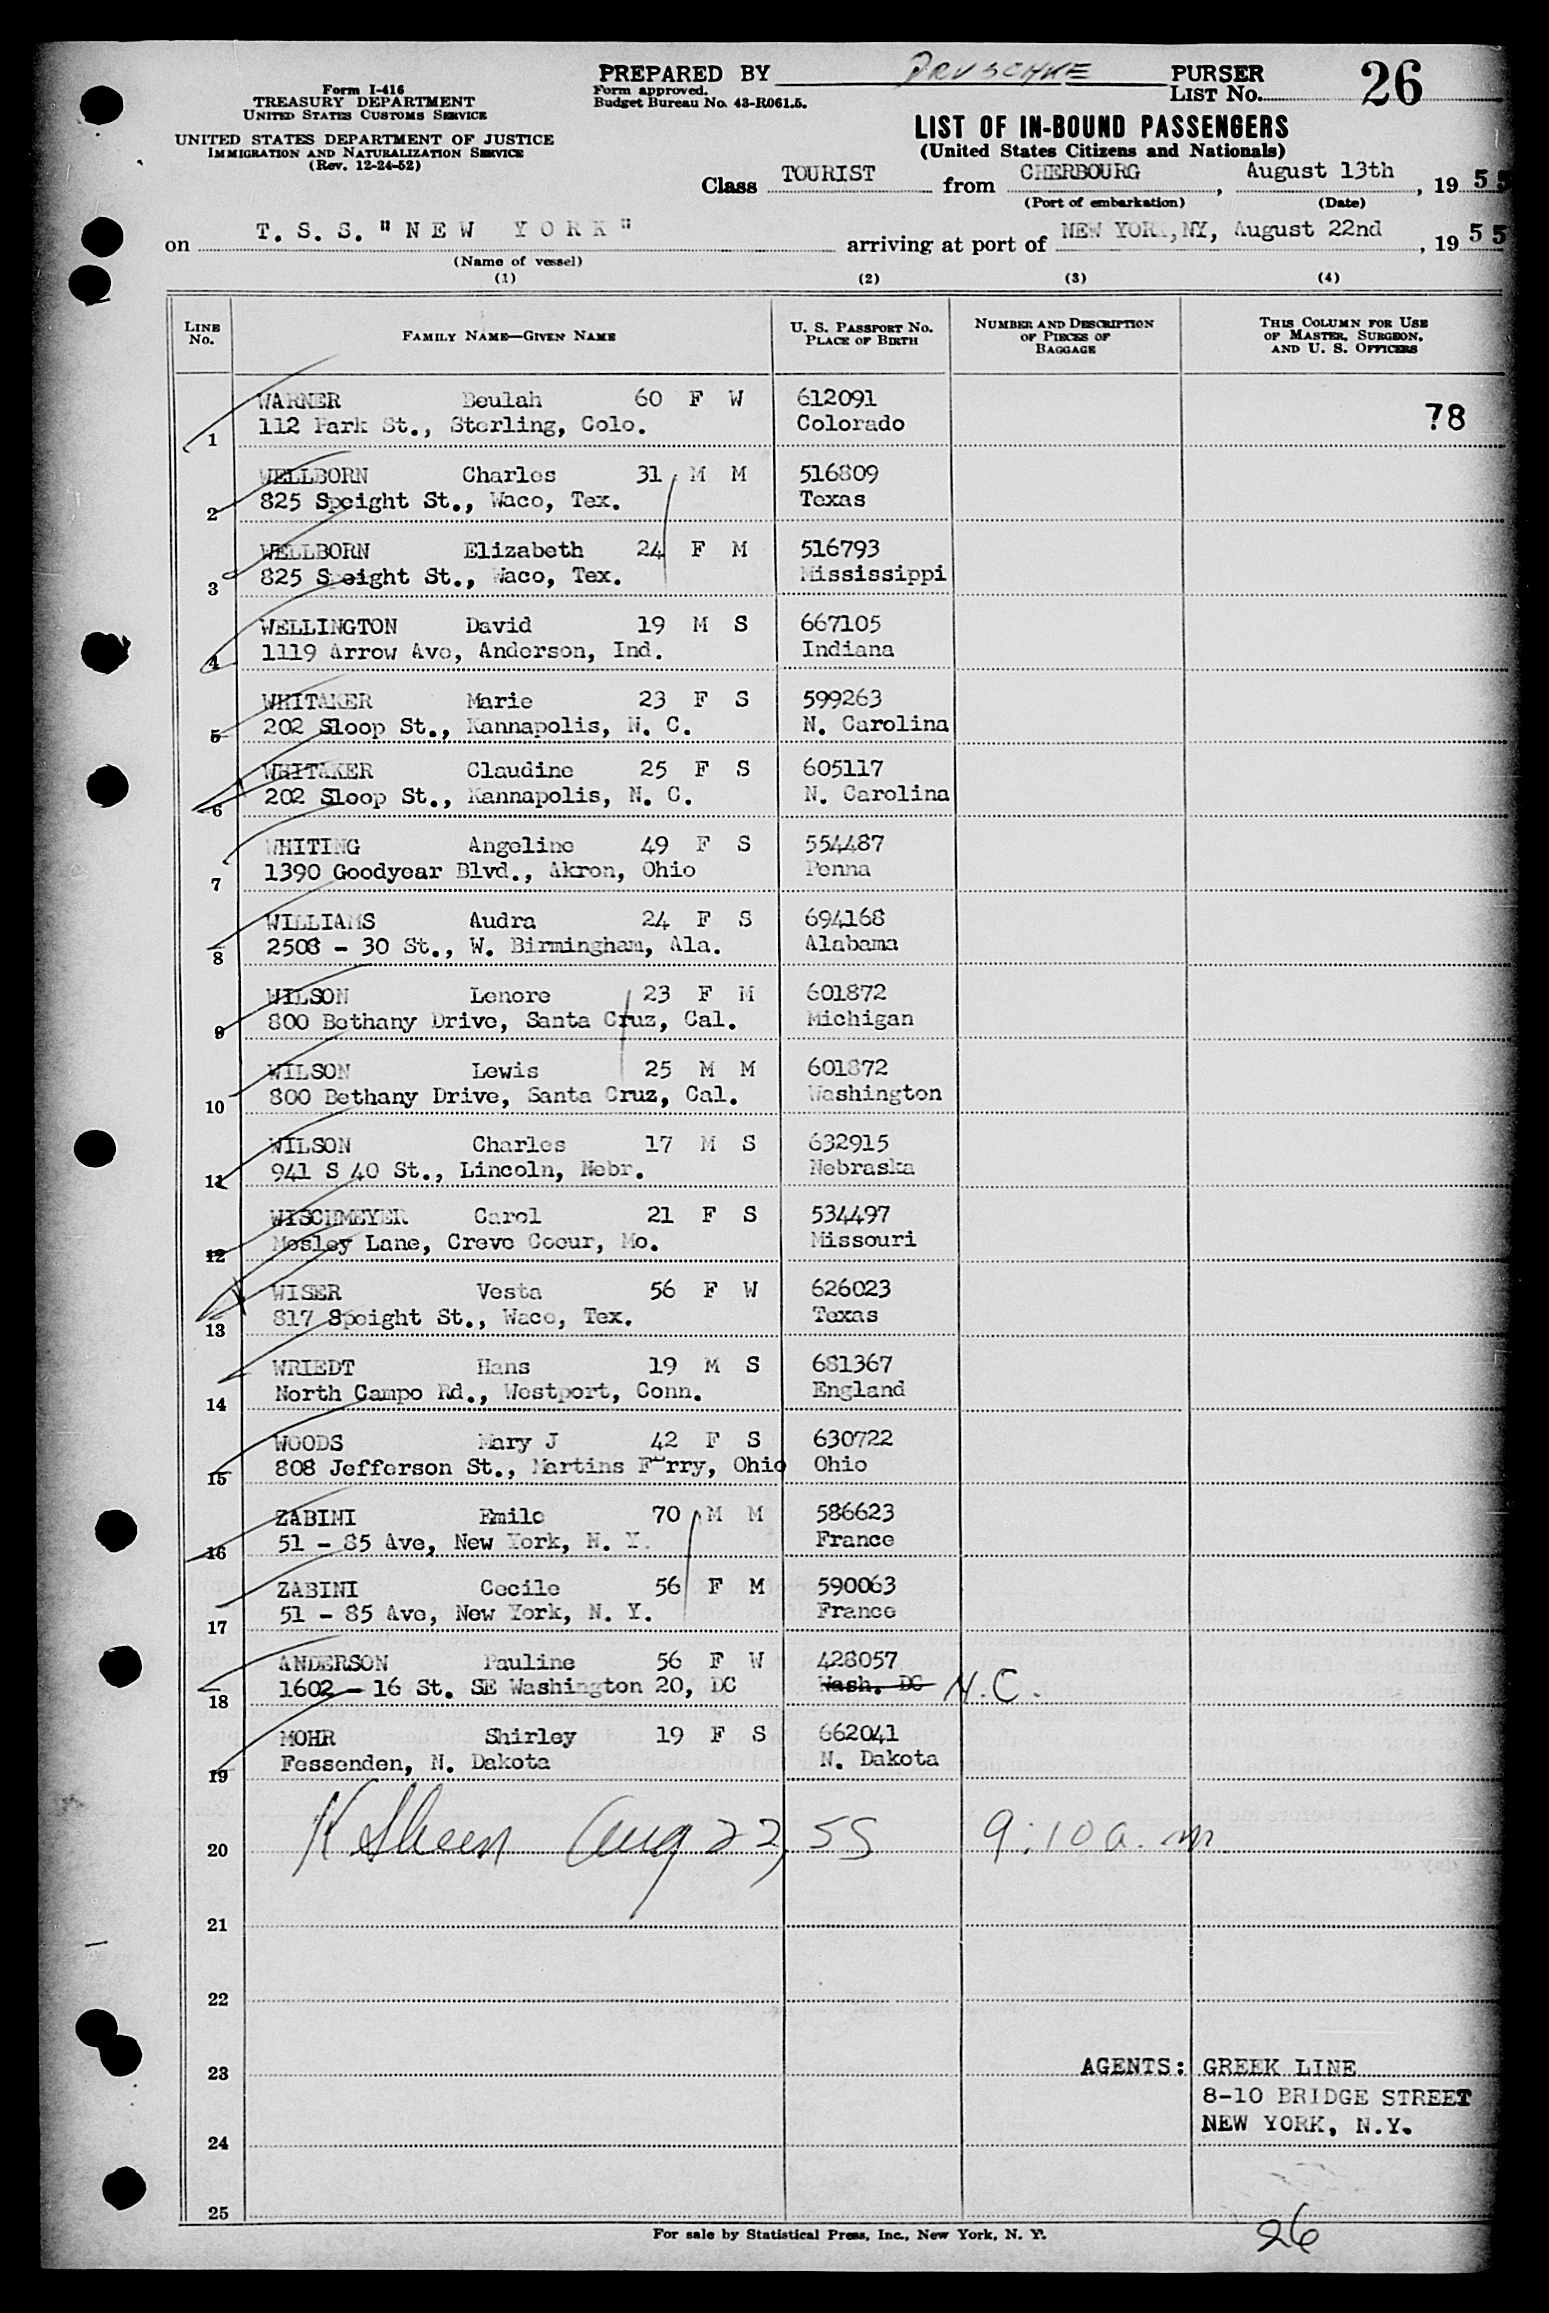 Form I-416
TREASURY DEPARTMENT
UNITED STATES CUSTOMS SERVICE
UNITED STATES DEPARTMENT OF JUSTICE
IMMIGRATION AND NATURALIZATION SERVICE
(Rev. 12-24-52)
PREPARED BY DRUSCHKE PURSER
Form approved.
Budget Bureau No. 43-R061.5.
LIST No. 26
LIST OF IN-BOUND PASSENGERS
(United States Citizens and Nationals)
Class TOURIST from CHERBOURG, August 13th, 1955
(Port of embarkation) (Date)
on T. S. S. "NEW YORK" arriving at port of NEW YORK, NY, August 22nd, 1955
(Name of vessel)
(1) (2) (3) (4)
LINE No. FAMILY NAME—GIVEN NAME U. S. PASSPORT No. PLACE OF BIRTH NUMBER AND DESCRIPTION OF PIECES OF BAGGAGE THIS COLUMN FOR USE OF MASTER, SURGEON, AND U. S. OFFICERS
WARNER Beulah 60 F W 612091
1 112 Park St., Sterling, Colo. Colorado 78
WELLBORN Charles 31 M M 516809
2 825 Speight St., Waco, Tex. Texas
WELLBORN Elizabeth 24 F M 516793
3 825 Speight St., Waco, Tex. Mississippi
WELLINGTON David 19 M S 667105
4 1119 Arrow Ave, Anderson, Ind. Indiana
WHITAKER Marie 23 F S 599263
5 202 Sloop St., Kannapolis, N. C. N. Carolina
WHITAKER Claudine 25 F S 605117
6 202 Sloop St., Kannapolis, N. C. N. Carolina
WHITING Angeline 49 F S 554487
7 1390 Goodyear Blvd., Akron, Ohio Penna
WILLIAMS Audra 24 F S 694168
8 2508 - 30 St., W. Birmingham, Ala. Alabama
WILSON Lenore 23 F M 601872
9 800 Bethany Drive, Santa Cruz, Cal. Michigan
WILSON Lewis 25 M M 601872
10 800 Bethany Drive, Santa Cruz, Cal. Washington
WILSON Charles 17 M S 632915
11 941 S 40 St., Lincoln, Nebr. Nebraska
WISCHMEYER Carol 21 F S 534497
12 Mosley Lane, Creve Coeur, Mo. Missouri
WISER Vesta 56 F W 626023
13 817 Speight St., Waco, Tex. Texas
WRIEDT Hans 19 M S 681367
14 North Campo Rd., Westport, Conn. England
WOODS Mary J 42 F S 630722
15 808 Jefferson St., Martins Ferry, Ohio Ohio
ZABINI Emile 70 M M 586623
16 51 - 85 Ave, New York, N. Y. France
ZABINI Cecile 56 F M 590063
17 51 - 85 Ave, New York, N. Y. France
ANDERSON Pauline 56 F W 428057
18 1602 - 16 St. SE Washington 20, DC Wash. DC N.C.
MOHR Shirley 19 F S 662041
19 Fessenden, N. Dakota N. Dakota
20 K Sheen Aug 22, 55 9:10 a.m.
21
22
23 AGENTS: GREEK LINE
8-10 BRIDGE STREET
24 NEW YORK, N.Y.
25
For sale by Statistical Press, Inc., New York, N. Y.
26